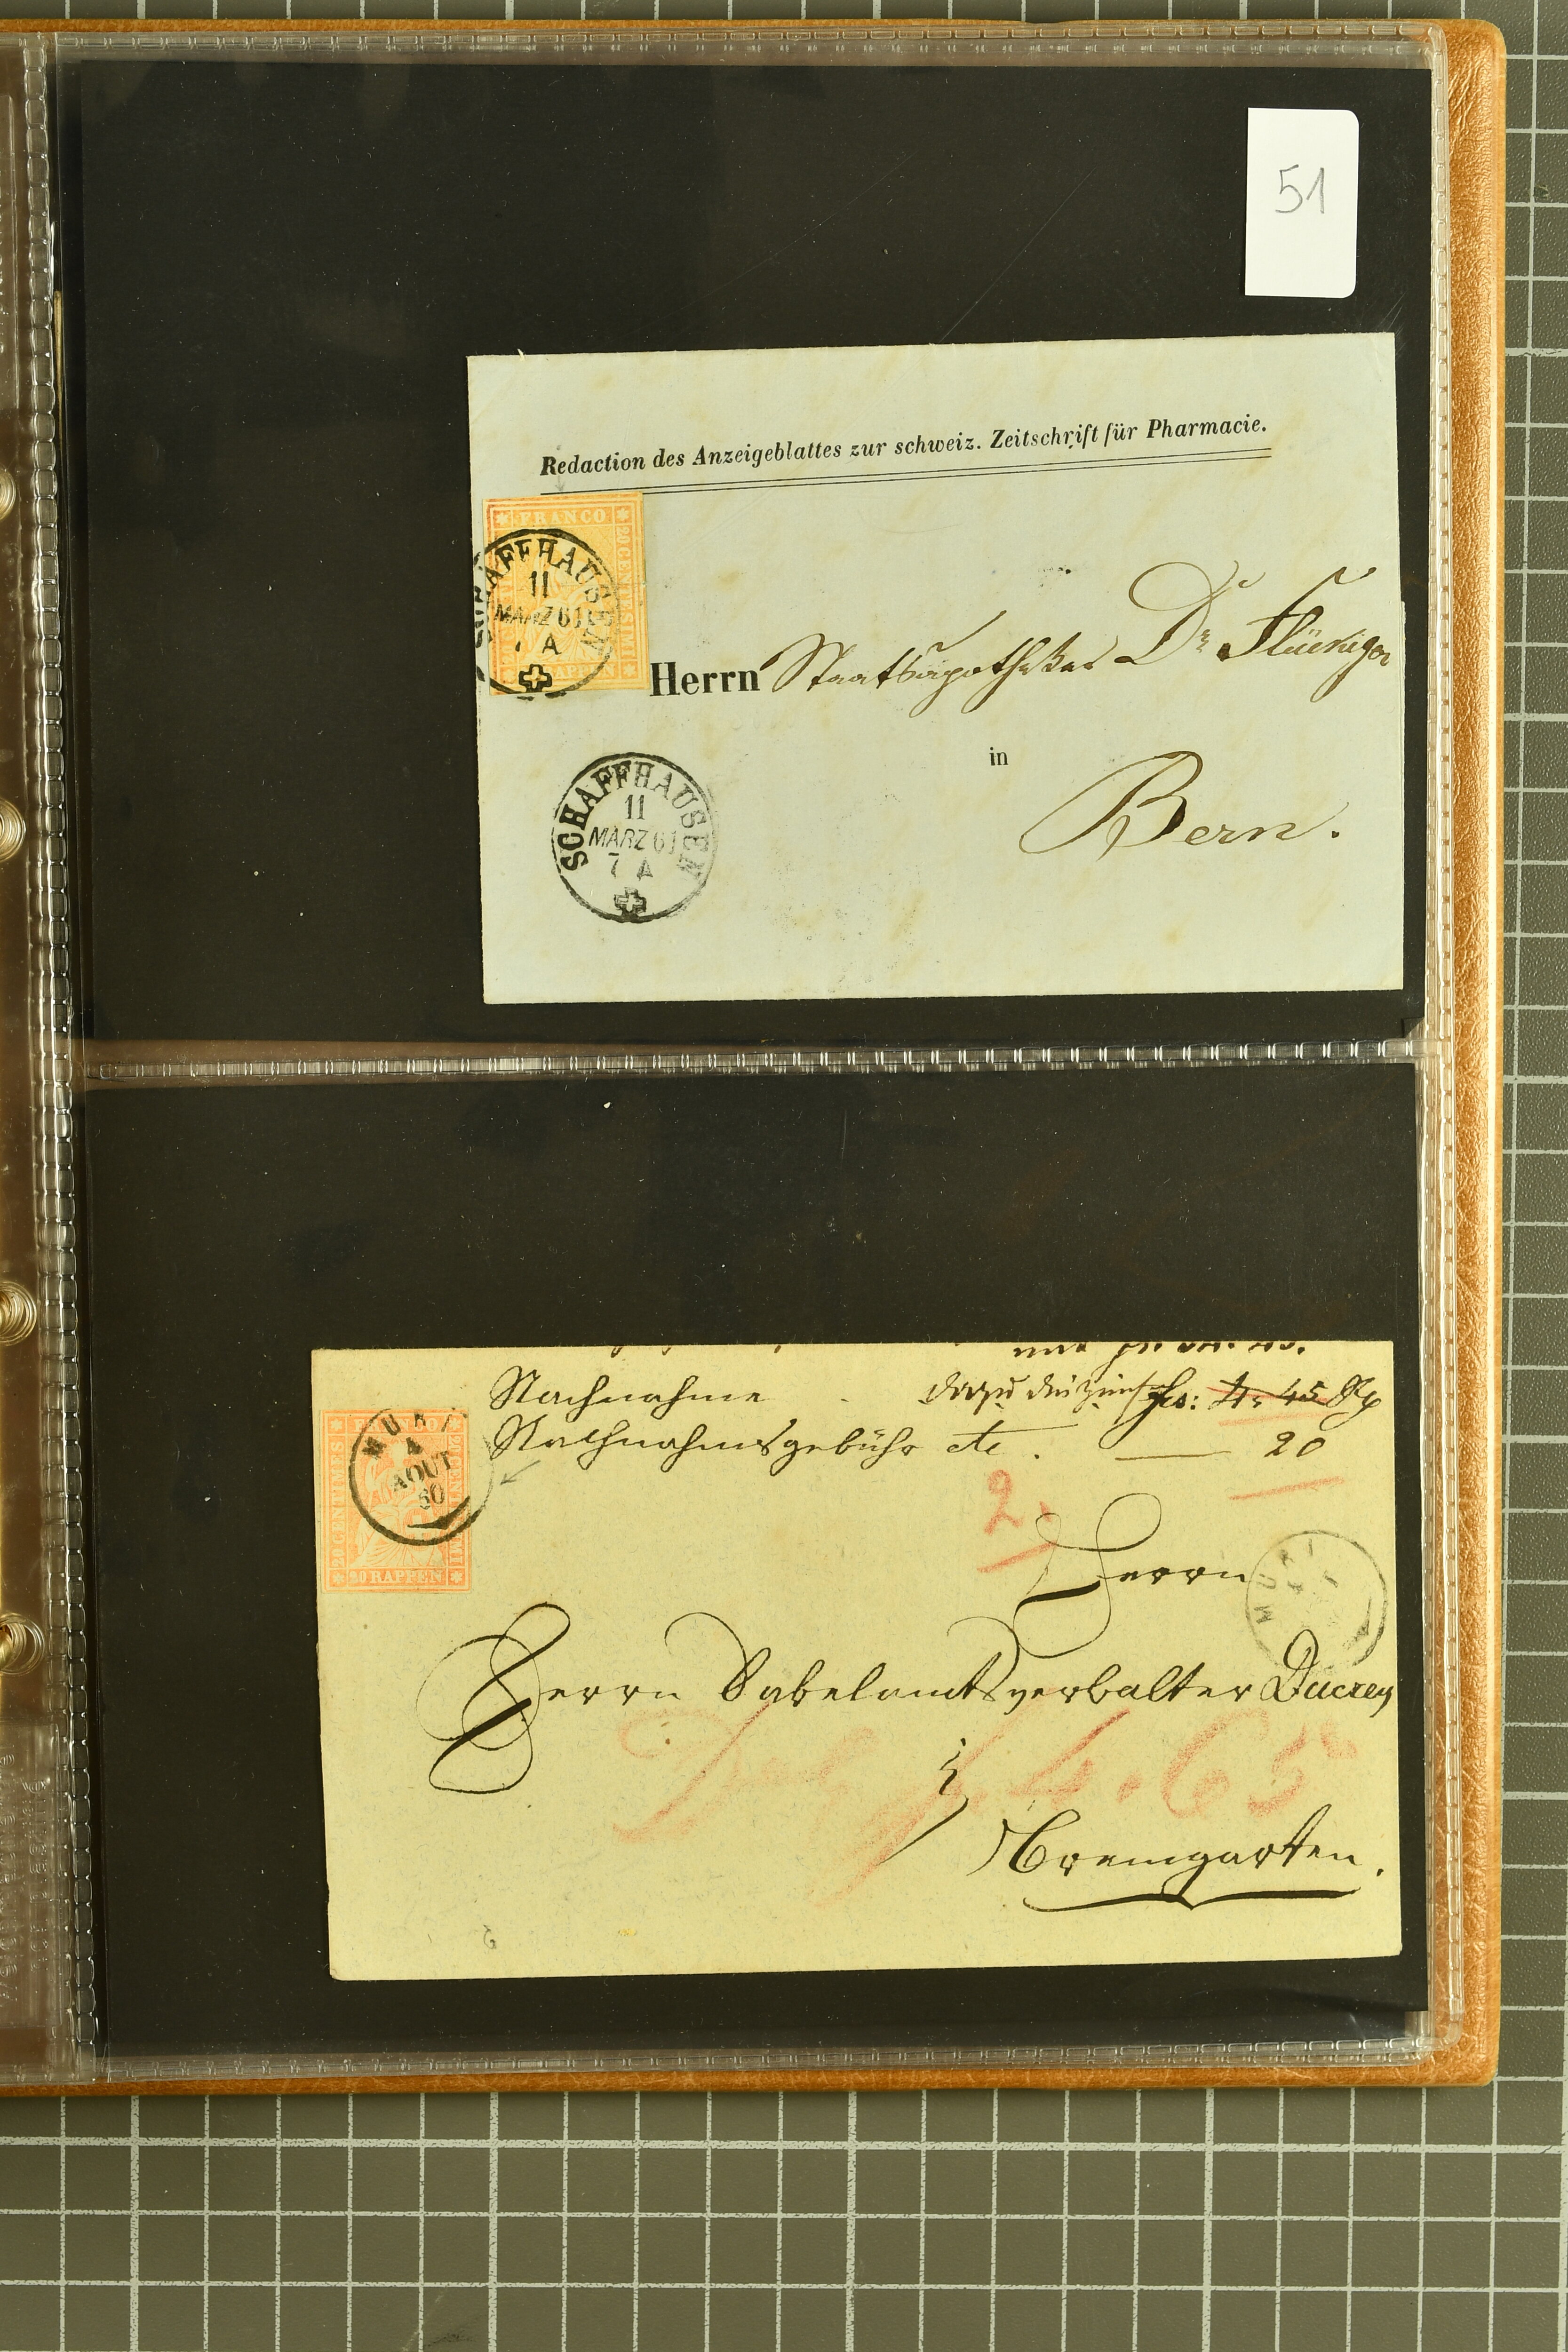 51
Redaction des Anzeigeblattes zur schweiz. Zeitschrift für Pharmacie.
FRANCO
20 CENTESIMI
RAPPEN
SCHAFFHAUSEN
11
MARZ 61
7 A
Herrn Staatsapotheker Dr Flückiger
in
Bern.
SCHAFFHAUSEN
11
MARZ 61
7 A
Nachnahme fcs: 4. 45 Rp
Nachnahmsgebühr etc. — 20
MURI
4
AOUT
60
20 CENTIMES
20 RAPPEN
2.
Herrn
MURI
Herrn Sabelamtsverwalter Ducrey
4.65
Bremgarten.